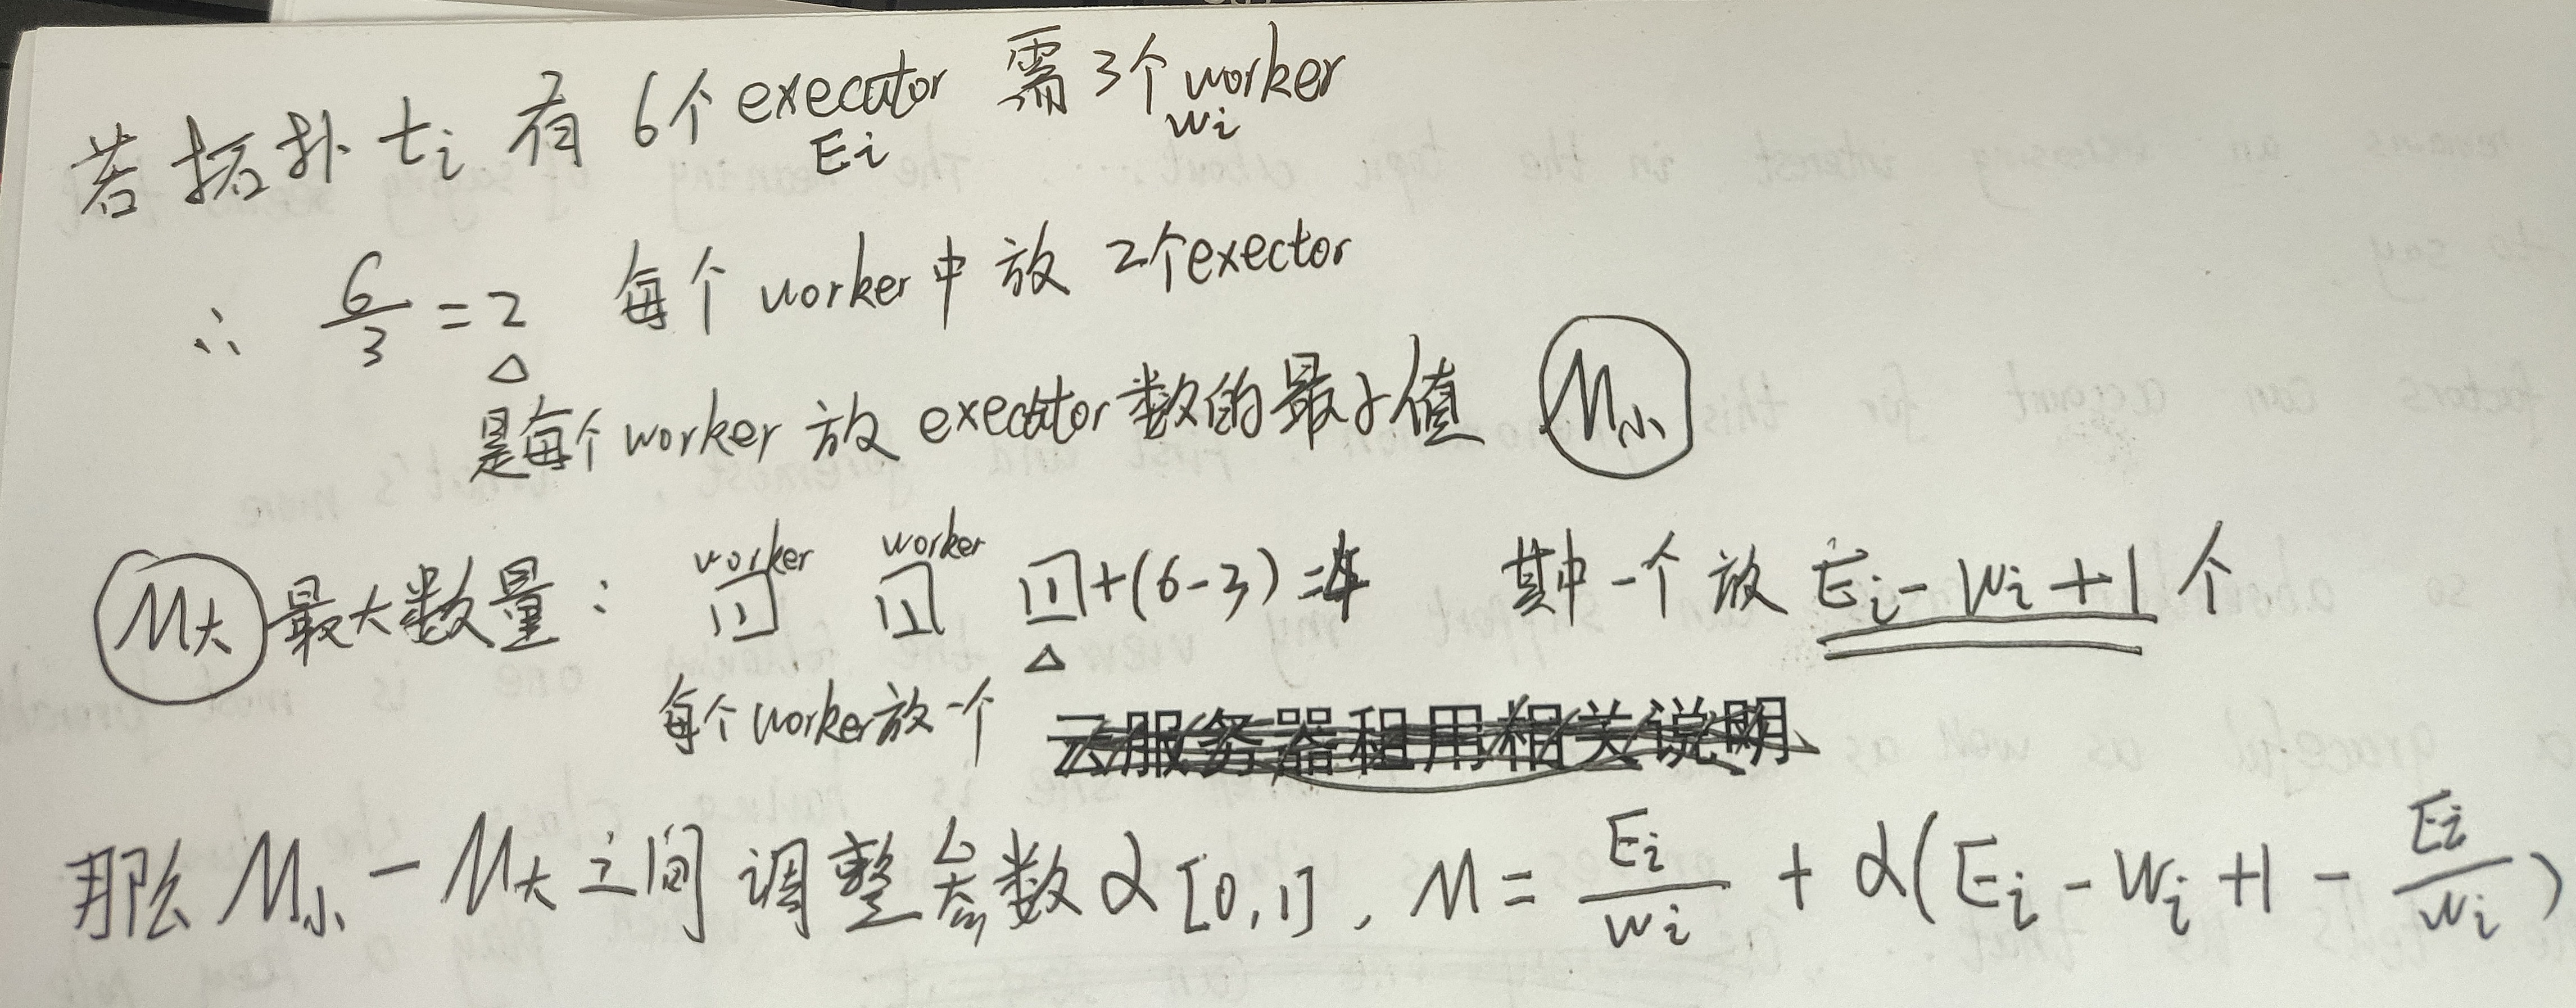 若拓扑 ti 有 6个 executor 需 3个 worker
Ei wi
∴ 6/3 = 2 每个 worker中 放 2个exector
△
是每个 worker 放 executor 数的最小值 M小
worker worker
M大 最大数量: 1 1 1 +(6-3) =4 其中一个放 Ei - wi + 1 个
△
每个 worker 放一个 云服务器租用相关说明
那么 M小 - M大 之间 调整参数 α [0,1], M = Ei/wi + α(Ei - wi + 1 - Ei/wi)